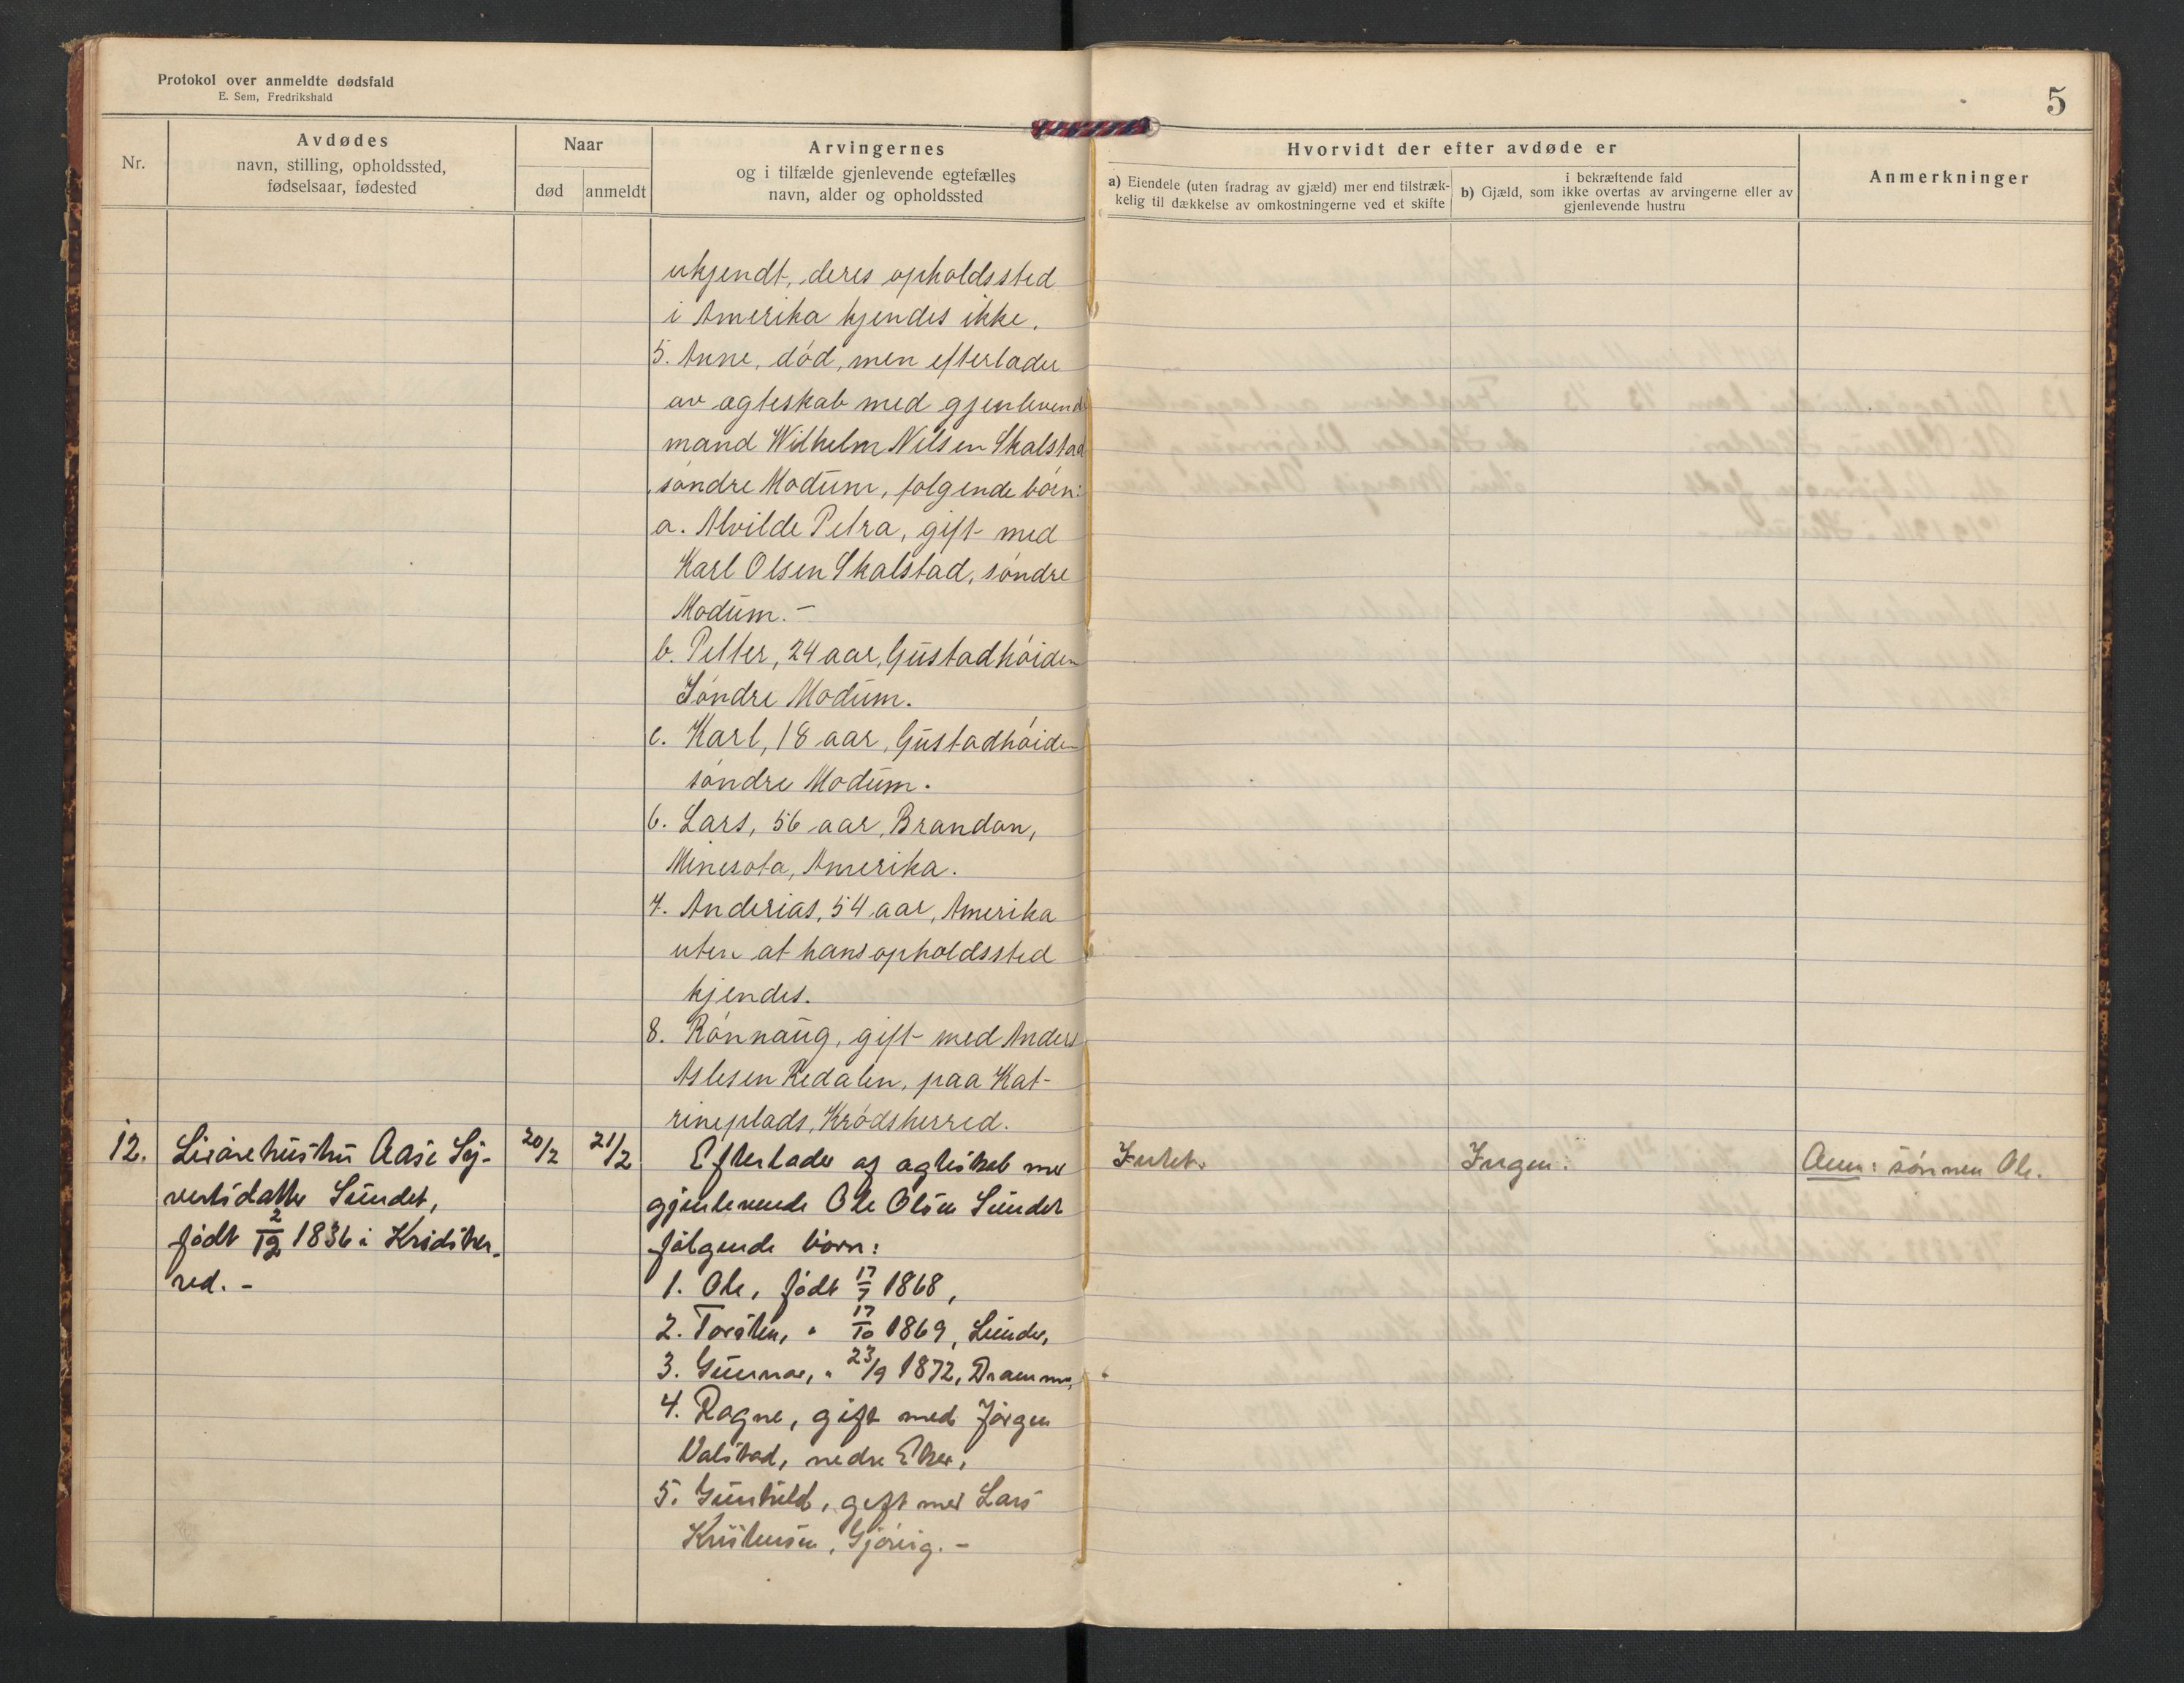 Protokol over anmeldte dødsfald
E. Sem, Fredrikshald
5
Nr.
Avdødes
navn, stilling, opholdssted,
fødselsaar, fødested
Naar
død
anmeldt
Arvingernes
og i tilfælde gjenlevende egtefælles
navn, alder og opholdssted
Hvorvidt der efter avdøde er
a) Eiendele (uten fradrag av gjæld) mer end tilstræk-
kelig til dækkelse av omkostningerne ved et skifte
i bekræftende fald
b) Gjæld, som ikke overtas av arvingerne eller av
gjenlevende hustru
Anmerkninger
ukjendt, deres opholdssted
i Amerika kjendes ikke.
5. Anne, død, men efterlader
av ægteskab med gjenlevende
mand Wilhelm Nilsen Skalstad
søndre Modum, følgende børn:
a. Alvilde Petra, gift med
Karl Olsen Skalstad, søndre
Modum. -
b. Petter, 24 aar, Gustadhøiden
Søndre Modum.
c. Karl, 18 aar, Gustadhøiden
søndre Modum.
6. Lars, 56 aar, Brandon,
Minesota, Amerika.
7. Anderias, 54 aar, Amerika
uten at hans opholdssted
kjendes.
8. Rønnaug, gift med Anders
Aslesen Redalen, paa Kat-
rineplads, Krødsherred.
12.
hustru Aase Sy-
vertsdatter Sundet,
født 2/12 1836 i Krødsher-
red. -
20/2
21/2
Efterlader af ægteskab med
gjenlevende Ole Olsen Sundet
følgende børn:
1. Ole, født 17/7 1868,
2. Torsten, " 17/10 1869,
3. Gunnar, " 23/9 1872, Drammen,
4. Ragne, gift med Jørgen
Valstad, nedre Eker,
5. Gunhild, gift med Lars
Kristensen, Gjøvig. -
Intet.
Ingen.
Anm: sønnen Ole.